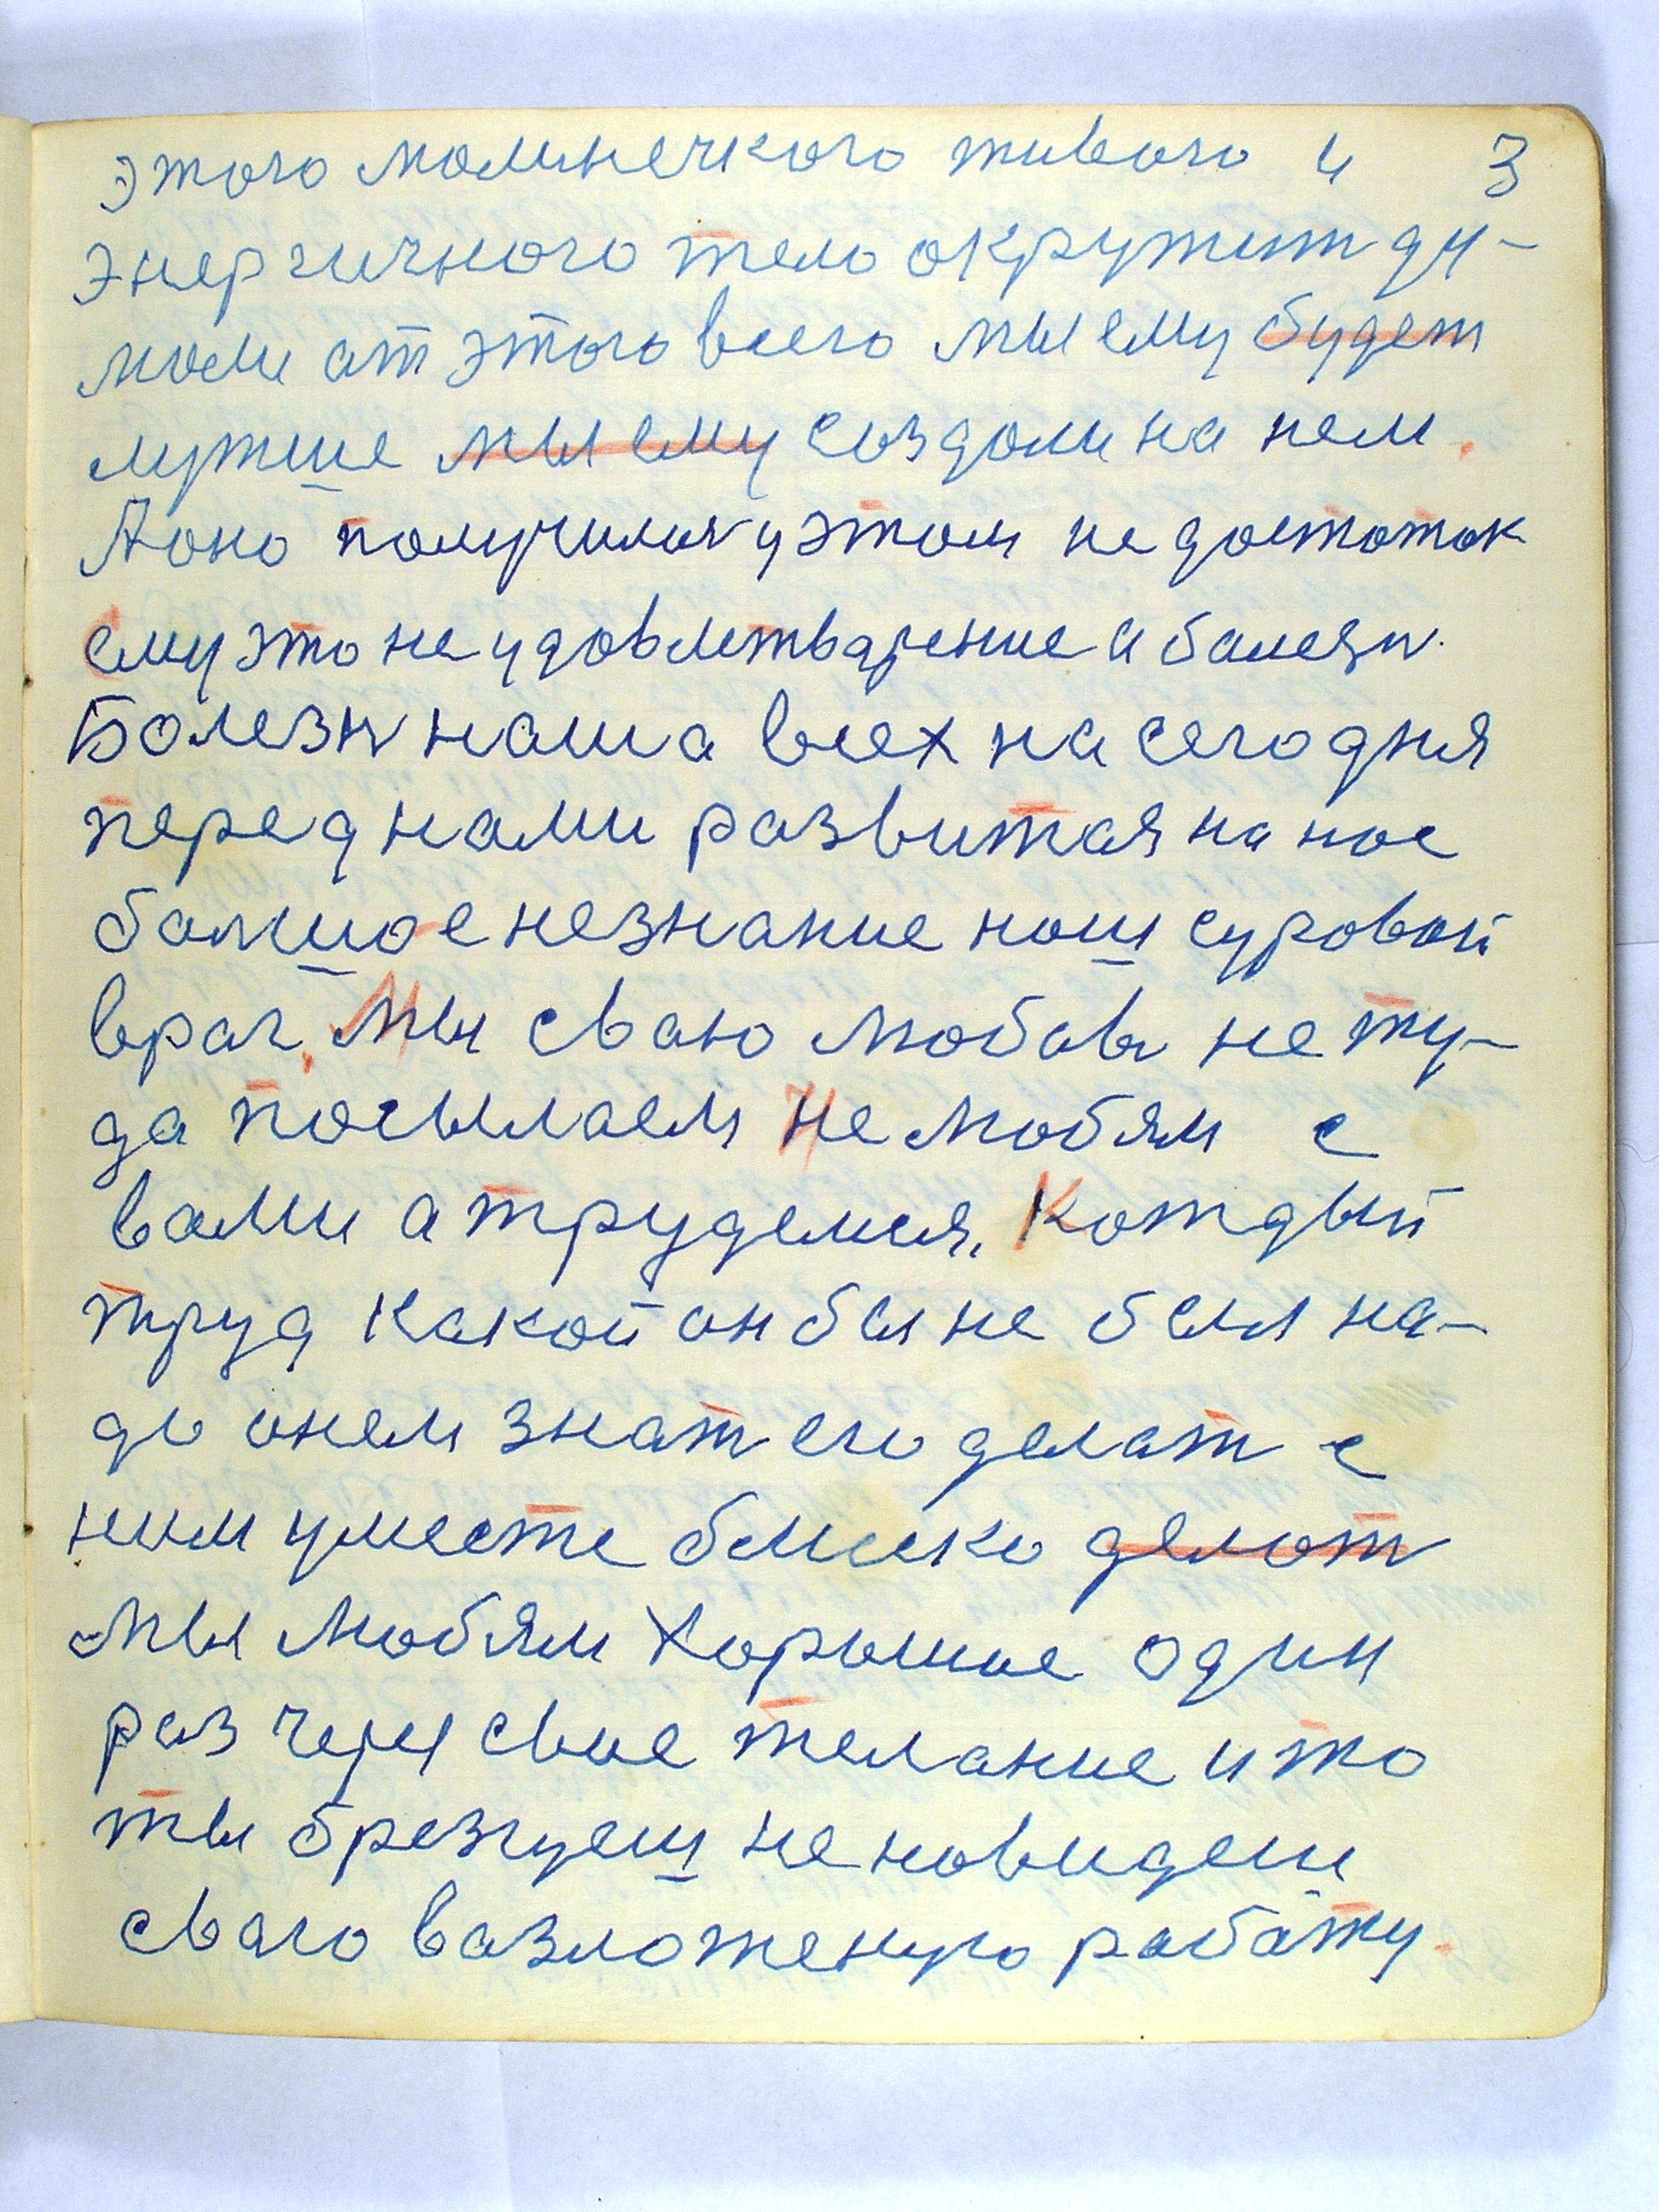 этого маминечкого живого и 3
энергичного тело окружит ду-
мали ат этого всего мы ему будет
лутше мы ему создали на нем.
А оно получилися у этом не достоток
ему это не удовлетварение и балезн.
Болезн наша всех на сегодня
перед нами развитая на нас
балшое незнание наш суровый
враг. Мы сваю любов не ту-
да посылаем не любям с
вами а трудемся. Каждый
труд какой он бы не был на-
до онем знат его делат с
ним уместе близко делат
мы любям хорошое один
раз через свое желание и то
ты брезгуеш не новидеш
сваго вазложеную работу.